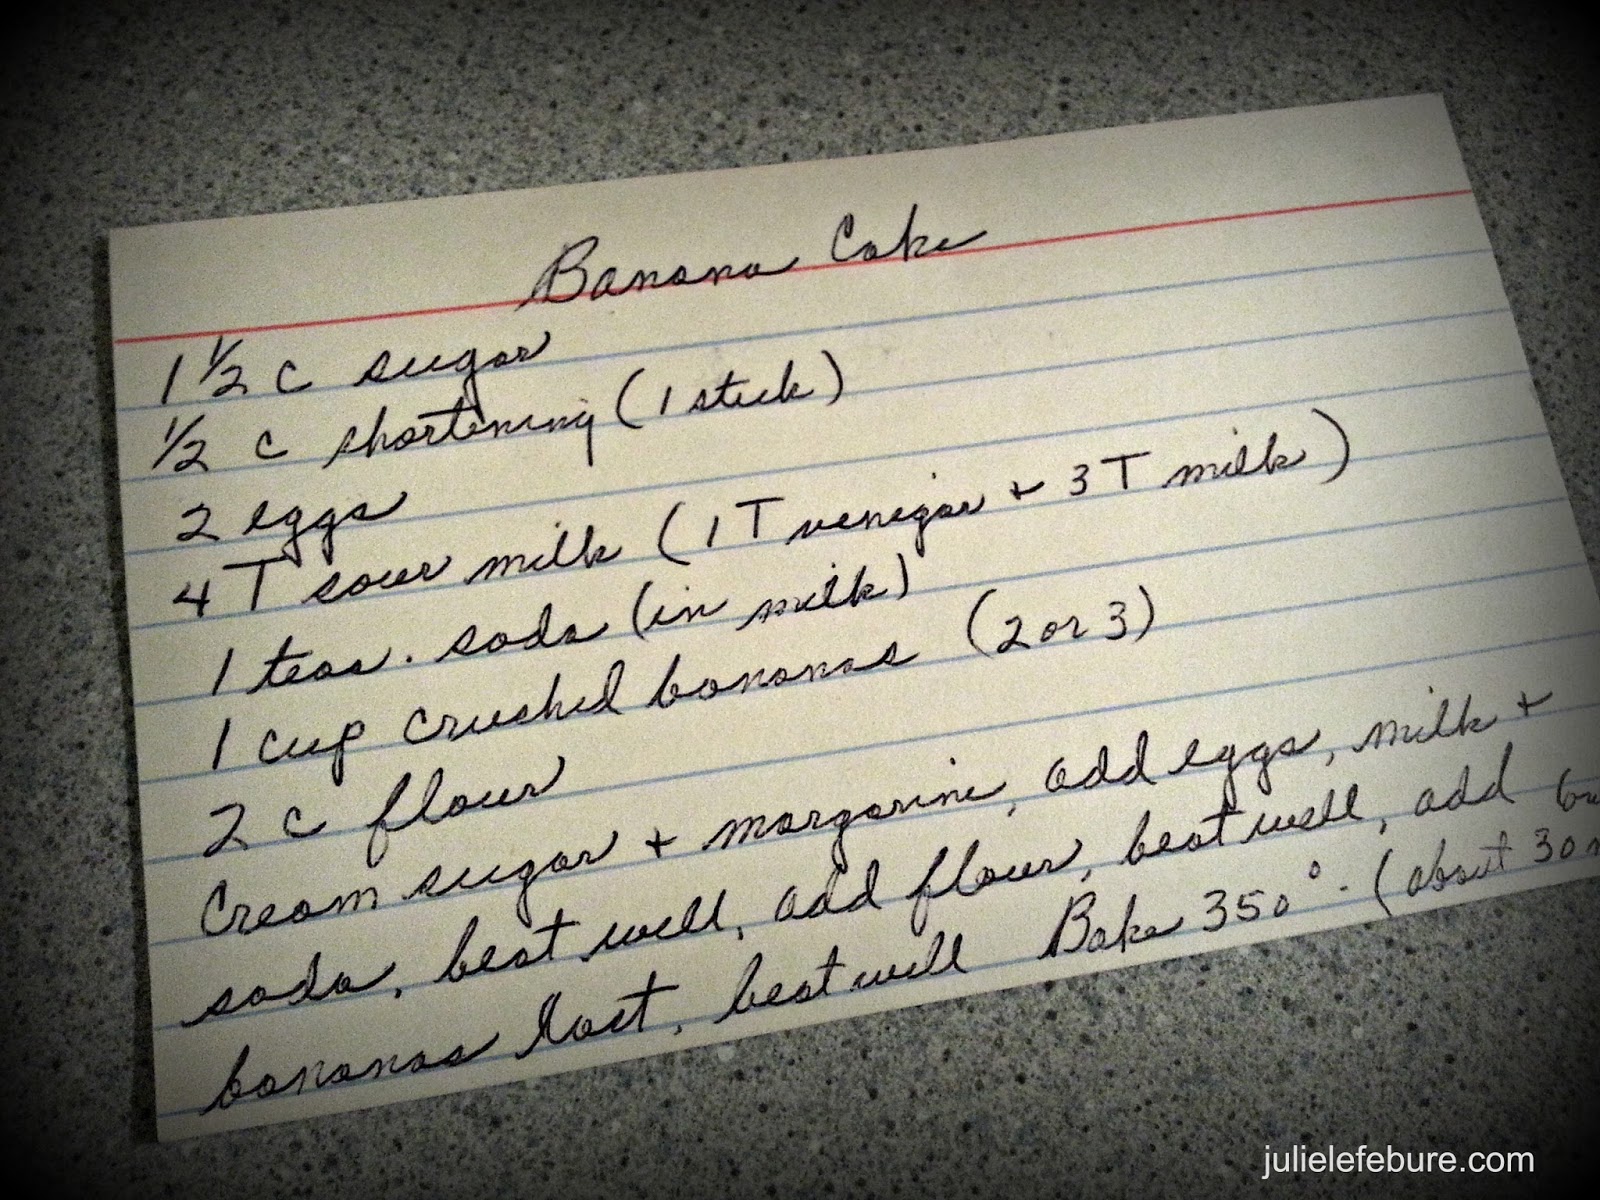 Banana Cake
1 1/2 c sugar
1/2 c shortening (1 stick)
2 eggs
4 T sour milk (1 T vinegar + 3 T milk)
1 teas. soda (in milk)
1 cup crushed bananas (2 or 3)
2 c flour
Cream sugar + margarine, add eggs, milk +
soda, beat well, add flour, beat well, add
bananas last, beat well Bake 350°. (about 30
julielefebure.com